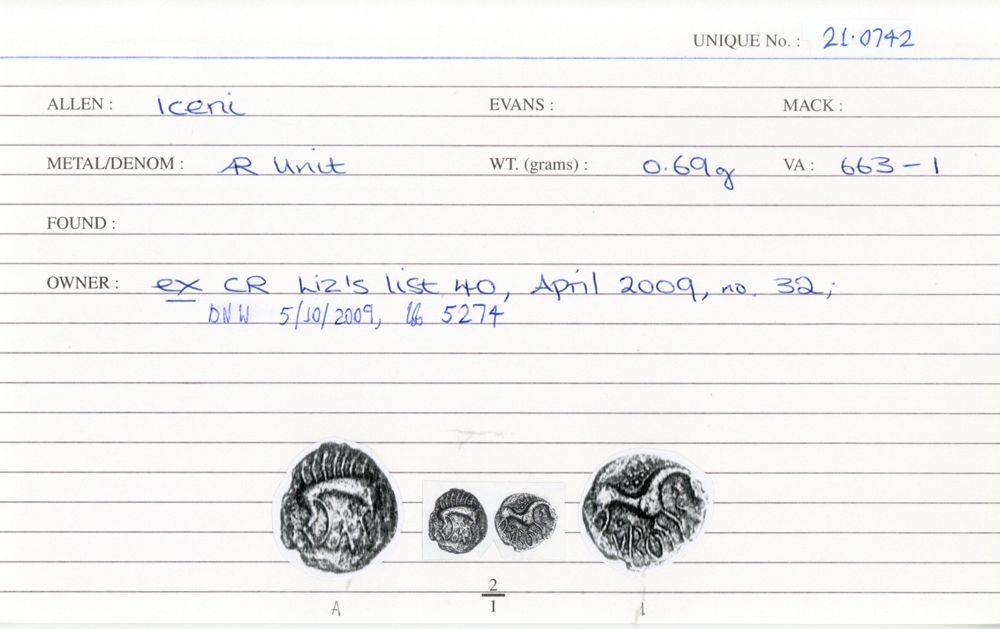 UNIQUE No. : 21.0742
ALLEN : Iceni EVANS : MACK :
METAL/DENOM : AR Unit WT. (grams) : 0.69g VA : 663-1
FOUND :
OWNER : ex CR Liz's list 40, April 2009, no. 32;
DNW 5/10/2009, 5274
2
1
A 1